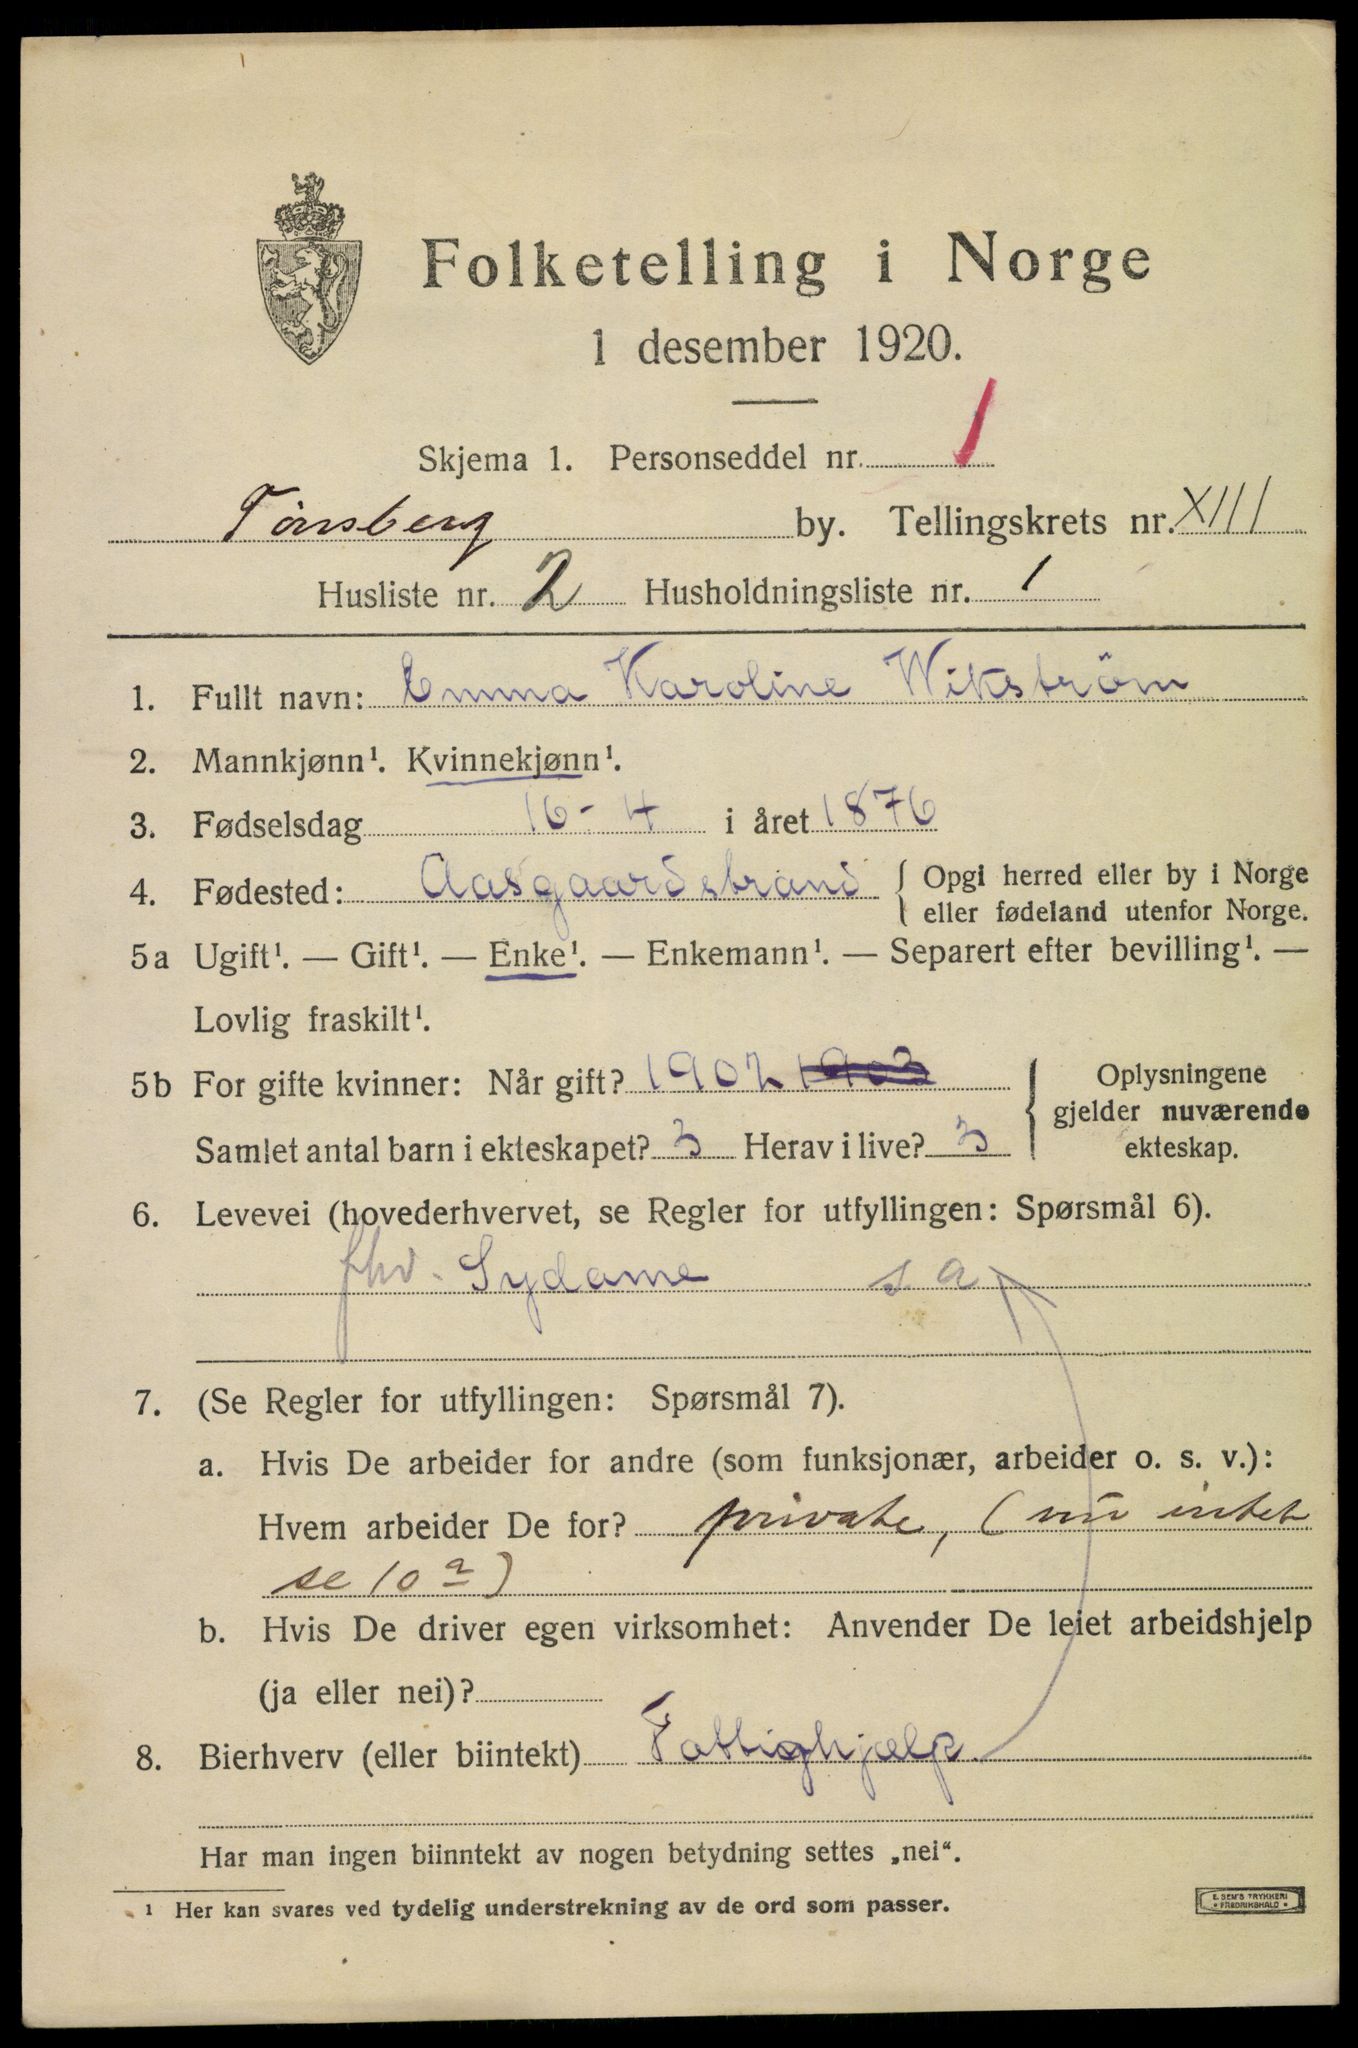 Folketelling i Norge
1 desember 1920.
Skjema 1. Personseddel nr. 1
Tønsberg by. Tellingskrets nr. XIII
Husliste nr. 2 Husholdningsliste nr. 1
1. Fullt navn: Emma Karoline Wikström
2. Mannkjønn¹. Kvinnekjønn¹.
3. Fødselsdag 16-4 i året 1876
4. Fødested: Aasgaardstrand { Opgi herred eller by i Norge
eller fødeland utenfor Norge.
5a Ugift¹. — Gift¹. — Enke¹. — Enkemann¹. — Separert efter bevilling¹. —
Lovlig fraskilt¹.
5b For gifte kvinner: Når gift? 1902 1903
Samlet antal barn i ekteskapet? 3 Herav i live? 3
Oplysningene
gjelder nuværende
ekteskap.
6. Levevei (hovederhvervet, se Regler for utfyllingen: Spørsmål 6).
fhv. Sydame s a
7. (Se Regler for utfyllingen: Spørsmål 7).
a. Hvis De arbeider for andre (som funksjonær, arbeider o. s. v.):
Hvem arbeider De for? private, (nu intet
se 10a)
b. Hvis De driver egen virksomhet: Anvender De leiet arbeidshjelp
(ja eller nei)?
8. Bierhverv (eller biintekt) Fattighjælp
Har man ingen biinntekt av nogen betydning settes „nei“.
¹ Her kan svares ved tydelig understrekning av de ord som passer.
E. SEM'S TRYKKERI
FREDRIKSHALD